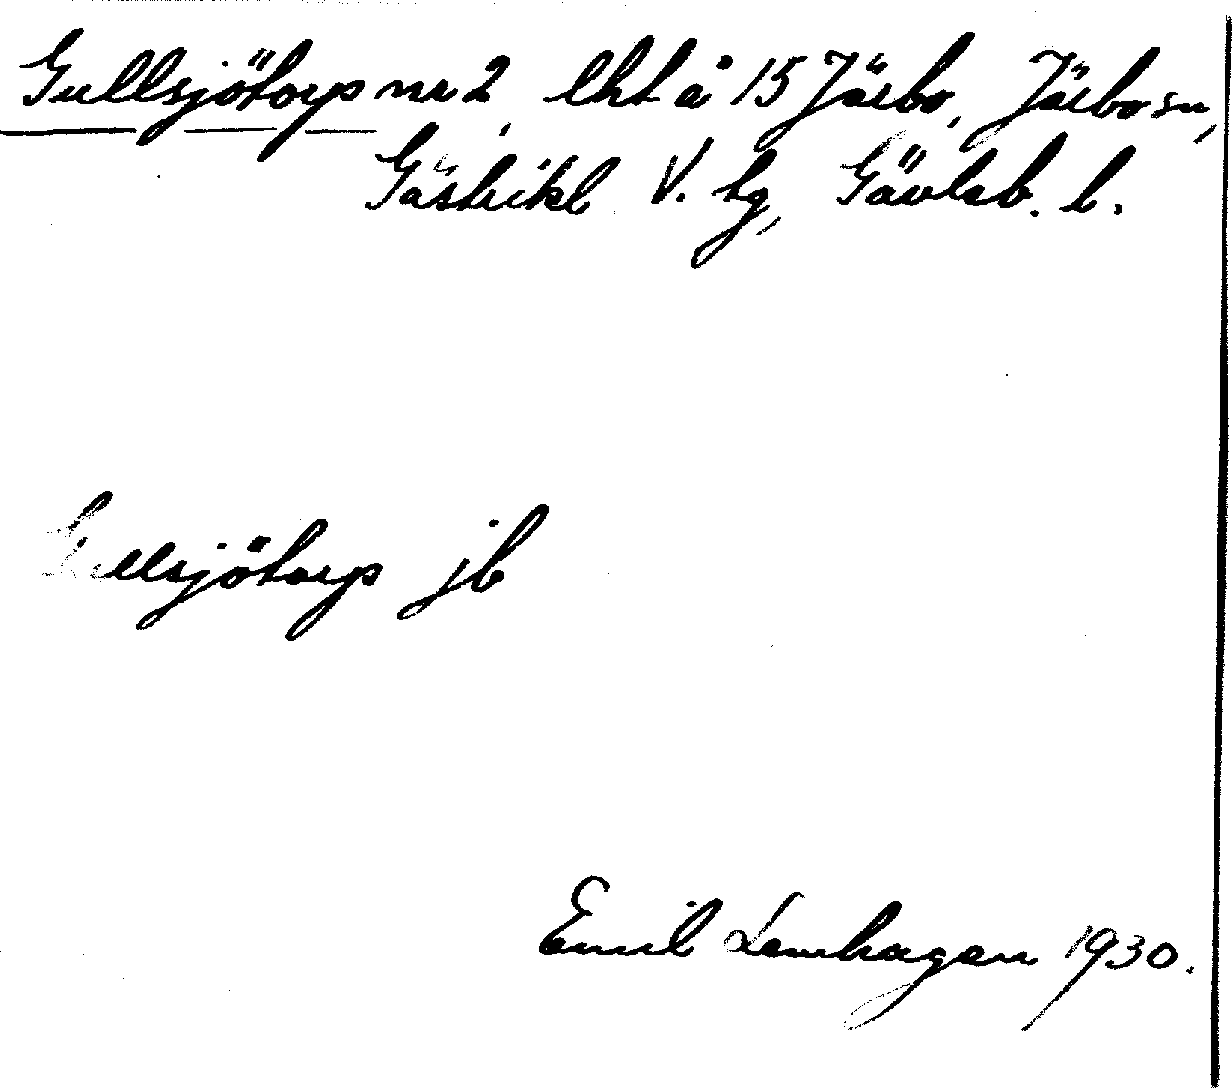 Gullsjötorp nr 2, lht å 15 Järbo, Järbo sn,
Gästrikl V. tg, Gävleb. l.
Gullsjötorp jb
Emil Lenhagen 1930.